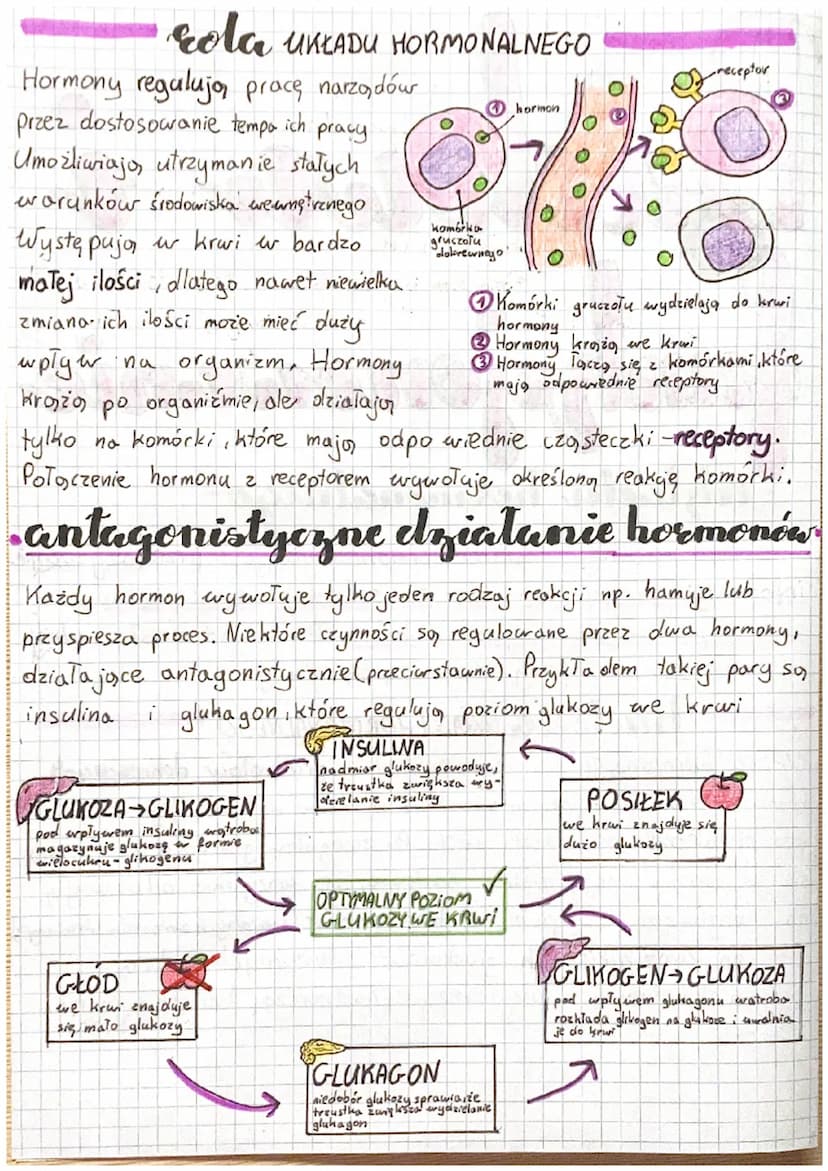 Rola UKŁADU HORMONALNEGO
Hormony regulują pracę narządów
przez dostosowanie tempa ich pracy
Umożliwiają utrzymanie stałych
warunków środowiska wewnętrznego
Występują w krwi w bardzo
małej ilości, dlatego nawet niewielka
zmiana ich ilości może mieć duży
wpływ na organizm. Hormony
krążą po organiźmie, ale działają
tylko na komórki, które mają odpowiednie cząsteczki - receptory.
Połączenie hormonu z receptorem wywołuje określoną reakcję komórki.
1
hormon
2
receptor
3
komórka
gruczołu
dokrewnego
1 Komórki gruczołu wydzielają do krwi
hormony
2 Hormony krążą we krwi
3 Hormony łączą się z komórkami, które
mają odpowiednie receptory
antagonistyczne działanie hormonów
Każdy hormon wywołuje tylko jeden rodzaj reakcji np. hamuje lub
przyspiesza proces. Niektóre czynności są regulowane przez dwa hormony,
działające antagonistycznie (przeciwstawnie). Przykładem takiej pary są
insulina i glukagon, które regulują poziom glukozy we krwi
INSULINA
nadmiar glukozy powoduje,
że trzustka zwiększa wy-
dzielanie insuliny
GLUKOZA → GLIKOGEN
pod wpływem insuliny wątroba
magazynuje glukozę w formie
wielocukru - glikogenu
POSIŁEK
we krwi znajduje się
dużo glukozy
OPTYMALNY POZIOM
GLUKOZY WE KRWI
GŁÓD
we krwi znajduje
się mało glukozy
GLIKOGEN → GLUKOZA
pod wpływem glukagonu wątroba
rozkłada glikogen na glukozę i uwalnia
je do krwi
GLUKAGON
niedobór glukozy sprawia, że
trzustka zwiększa wydzielanie
glukagon